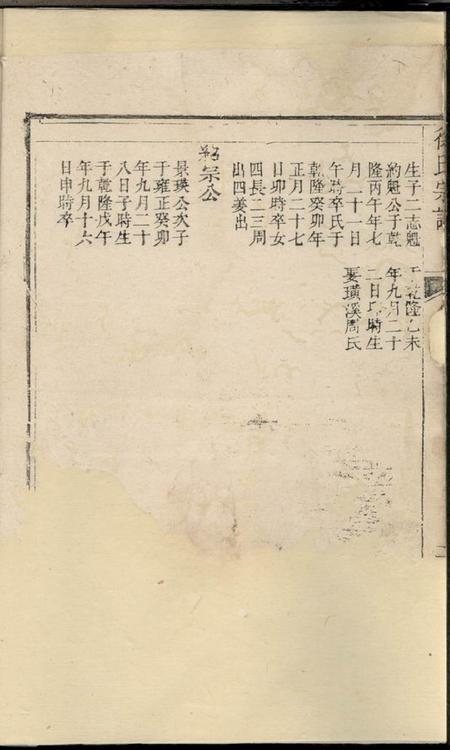 氏宗譜
生子二志魁
約魁公于乾
隆丙午年七
月二十一日
午時卒氏于
乾隆癸卯年
正月二十七
日卯時卒女
四長二三周
出四姜出
乾隆乙未
年九月二十
二日 時生
娶璜溪周氏
宗公
景瑛公次子
于雍正癸卯
年九月二十
八日子時生
于乾隆戊午
年九月十六
日申時卒